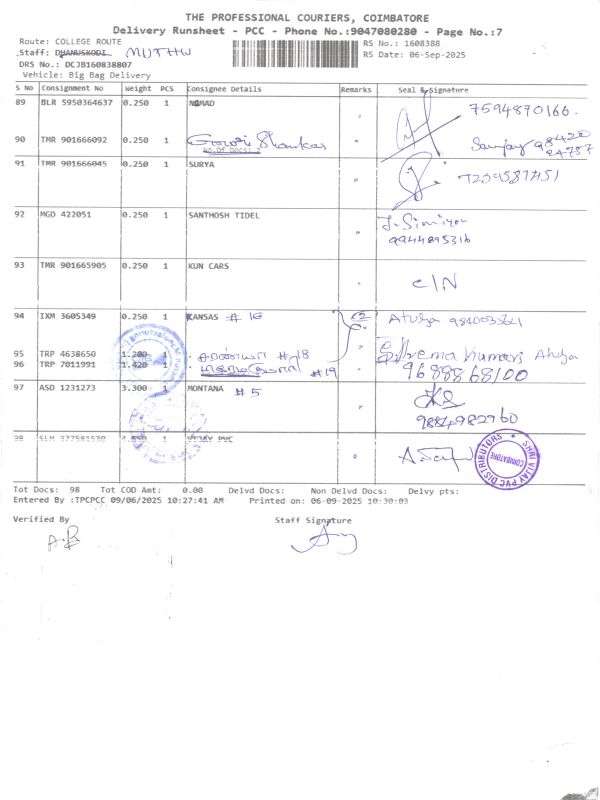 THE PROFESSIONAL COURIERS, COIMBATORE
Delivery Runsheet - PCC - Phone No.:9047080280 - Page No.:7
Route: COLLEGE ROUTE RS No.: 1608388
Staff: DHANUSKODI MUTHU RS Date: 06-Sep-2025
DRS No.: DCJB160838807
Vehicle: Big Bag Delivery
S No Consignment No Weight PCS Consignee Details Remarks Seal & Signature
89 BLR 5950364637 0.250 1 NOMAD 7594870166.
90 TMR 901666092 0.250 1 Gowri Shankar Sanjay
No.of Docs: 2
91 TMR 901666045 0.250 1 SURYA
92 MGD 422051 0.250 1 SANTHOSH TIDEL
9944895316
93 TMR 901665905 0.250 1 KUN CARS C/N
94 IXM 3605349 0.250 1 KANSAS # 16
95 TRP 4638650 1.200 1 # 18
96 TRP 7011991 1.420 1 # 19 9688868100
97 ASD 1231273 3.300 1 MONTANA # 5
9884982960
98 SLM 377581530 1 VIJAY PVC
SHRI VIJAY PVC DISTRIBUTORS COIMBATORE
Tot Docs: 98 Tot COD Amt: 0.00 Delvd Docs: Non Delvd Docs: Delvy pts:
Entered By :TPCPCC 09/06/2025 10:27:41 AM Printed on: 06-09-2025 10:30:03
Verified By Staff Signature
A.B